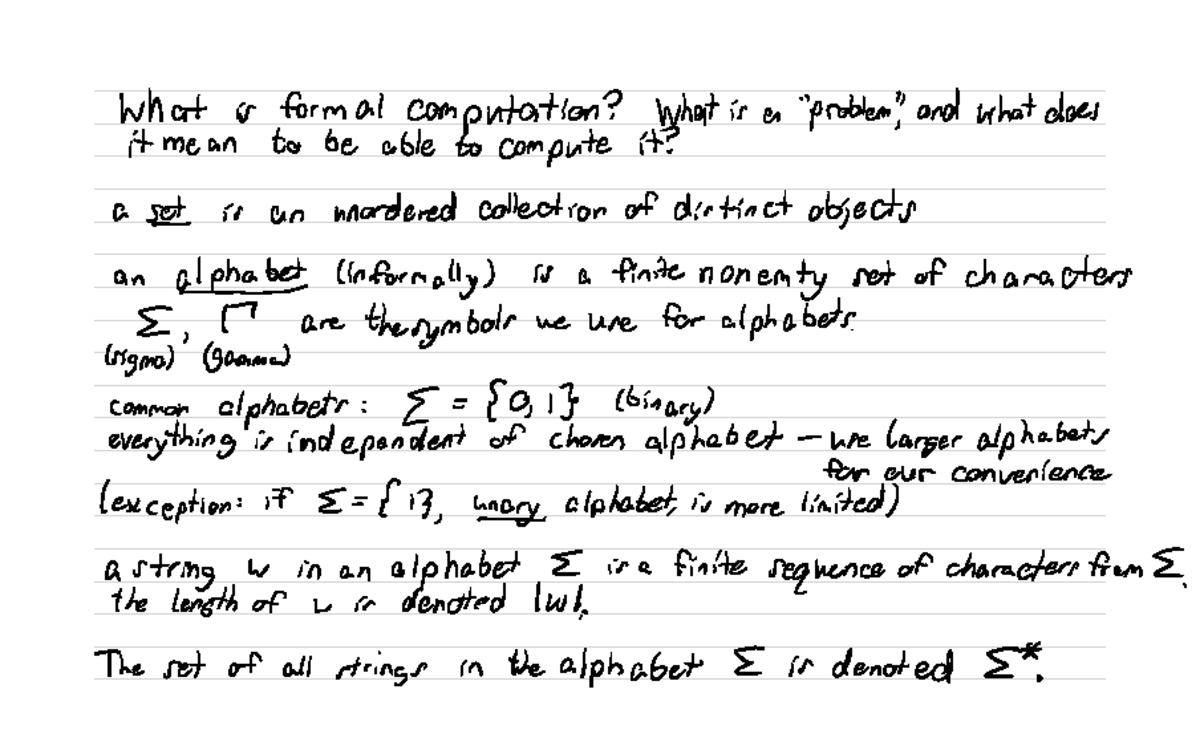 What is formal computation? What is a "problem," and what does
it mean to be able to compute it?
a set is an unordered collection of distinct objects
an alphabet (informally) is a finite nonemty set of characters
Σ, Γ are the symbols we use for alphabets.
(sigma) (gamma)
common alphabets: Σ = {0, 1} (binary)
everything is independent of chosen alphabet – use larger alphabets
for our convenience
(exception: if Σ = {1}, unary alphabet, is more limited)
a string w in an alphabet Σ is a finite sequence of characters from Σ.
the length of w is denoted |w|.
The set of all strings in the alphabet Σ is denoted Σ*.